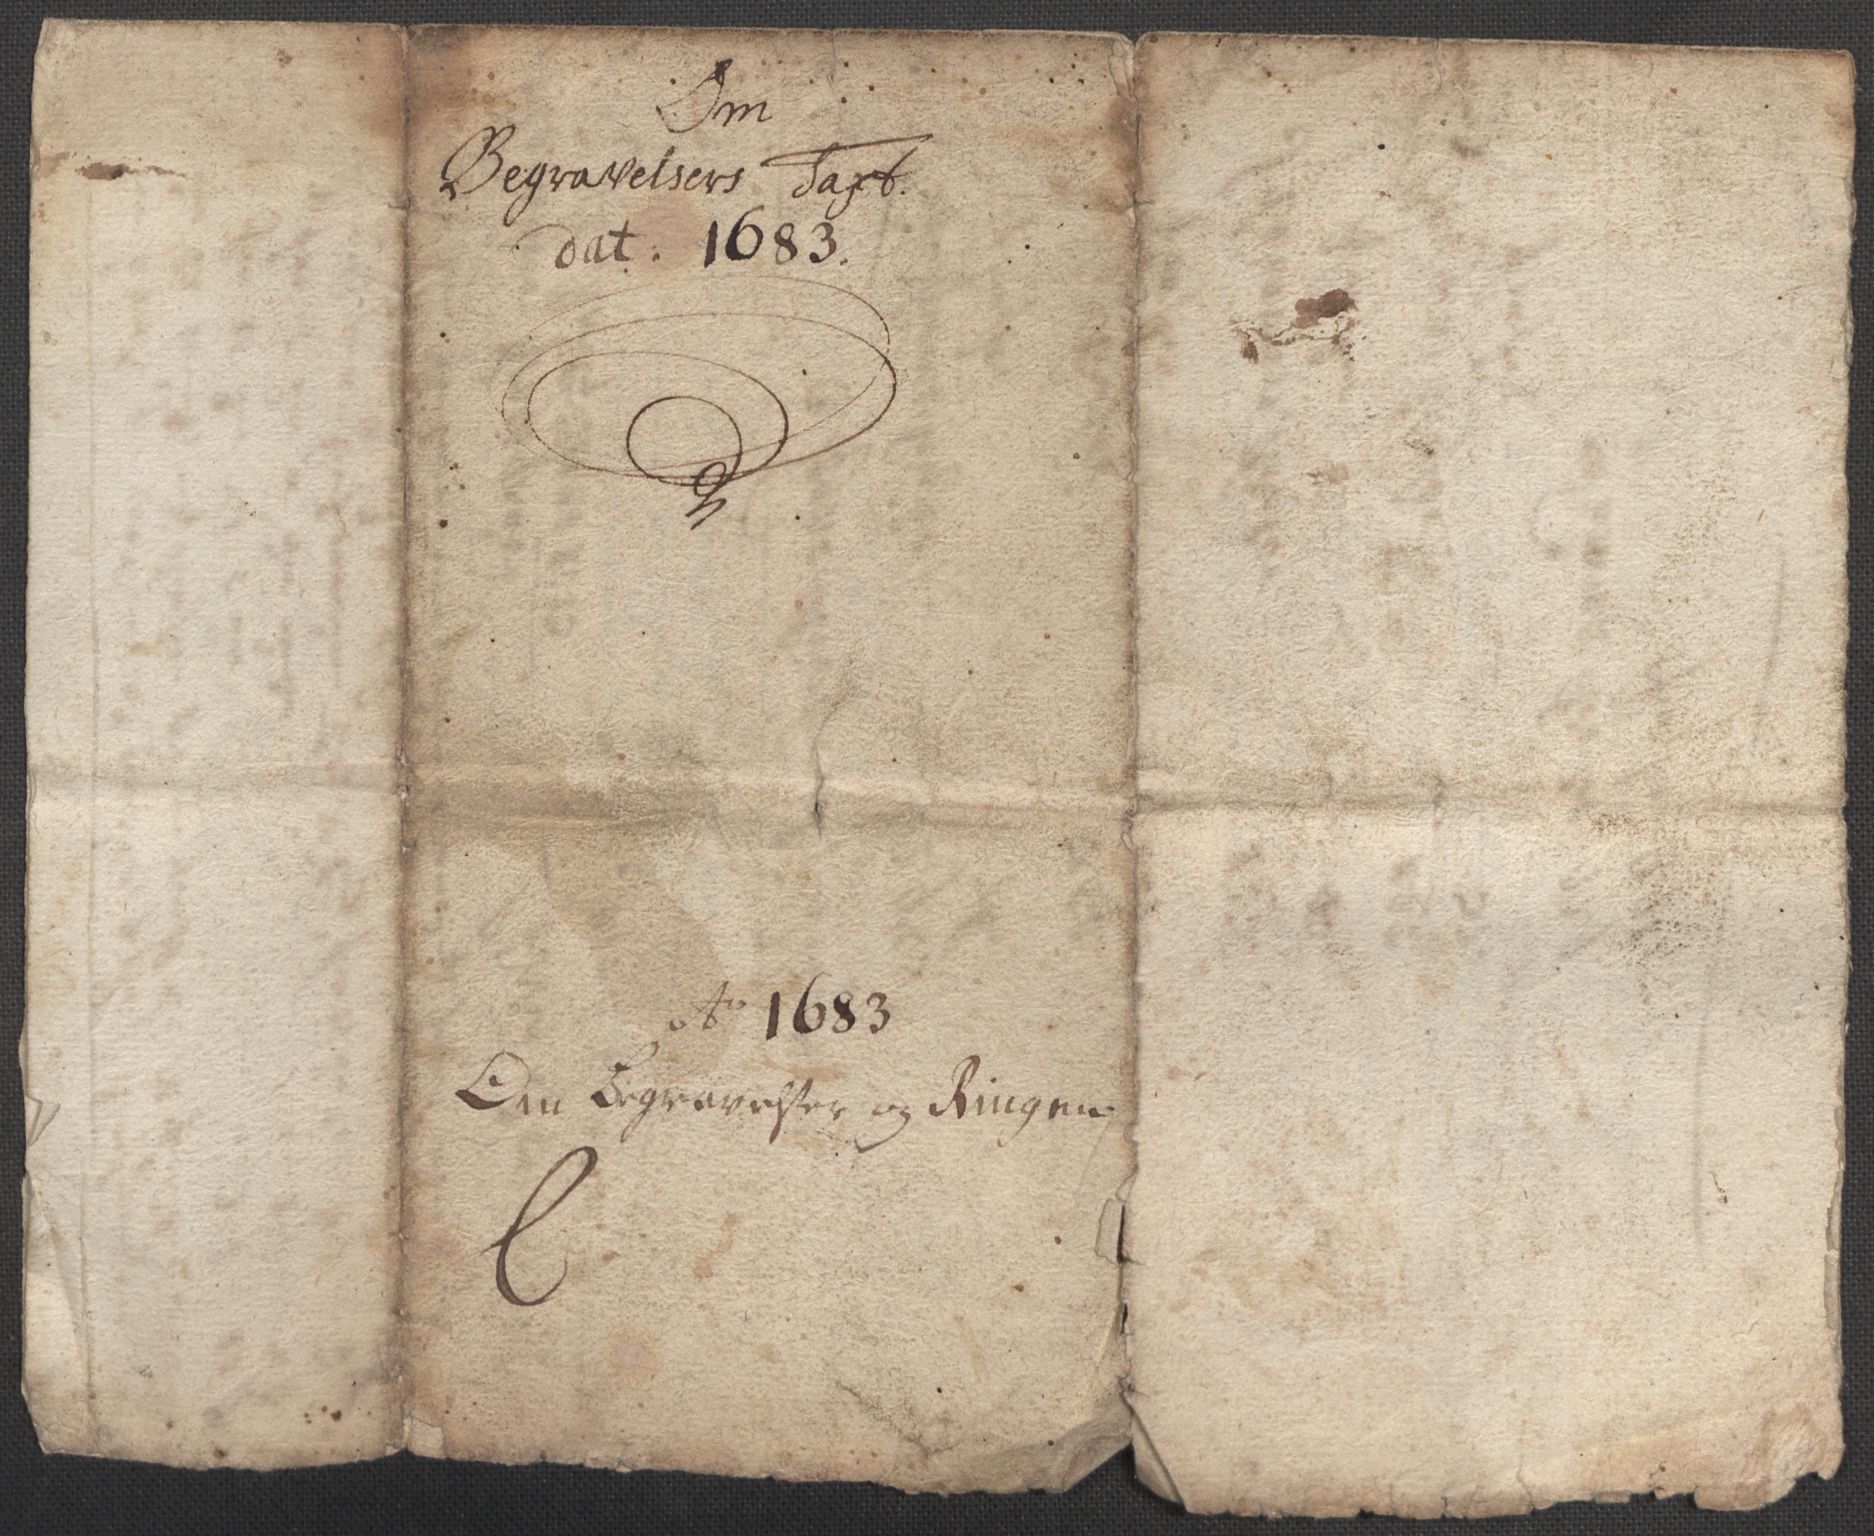 Om
Begravelsers Taxt.
dat. 1683.
Ao 1683
Om Begravelser og Ringen